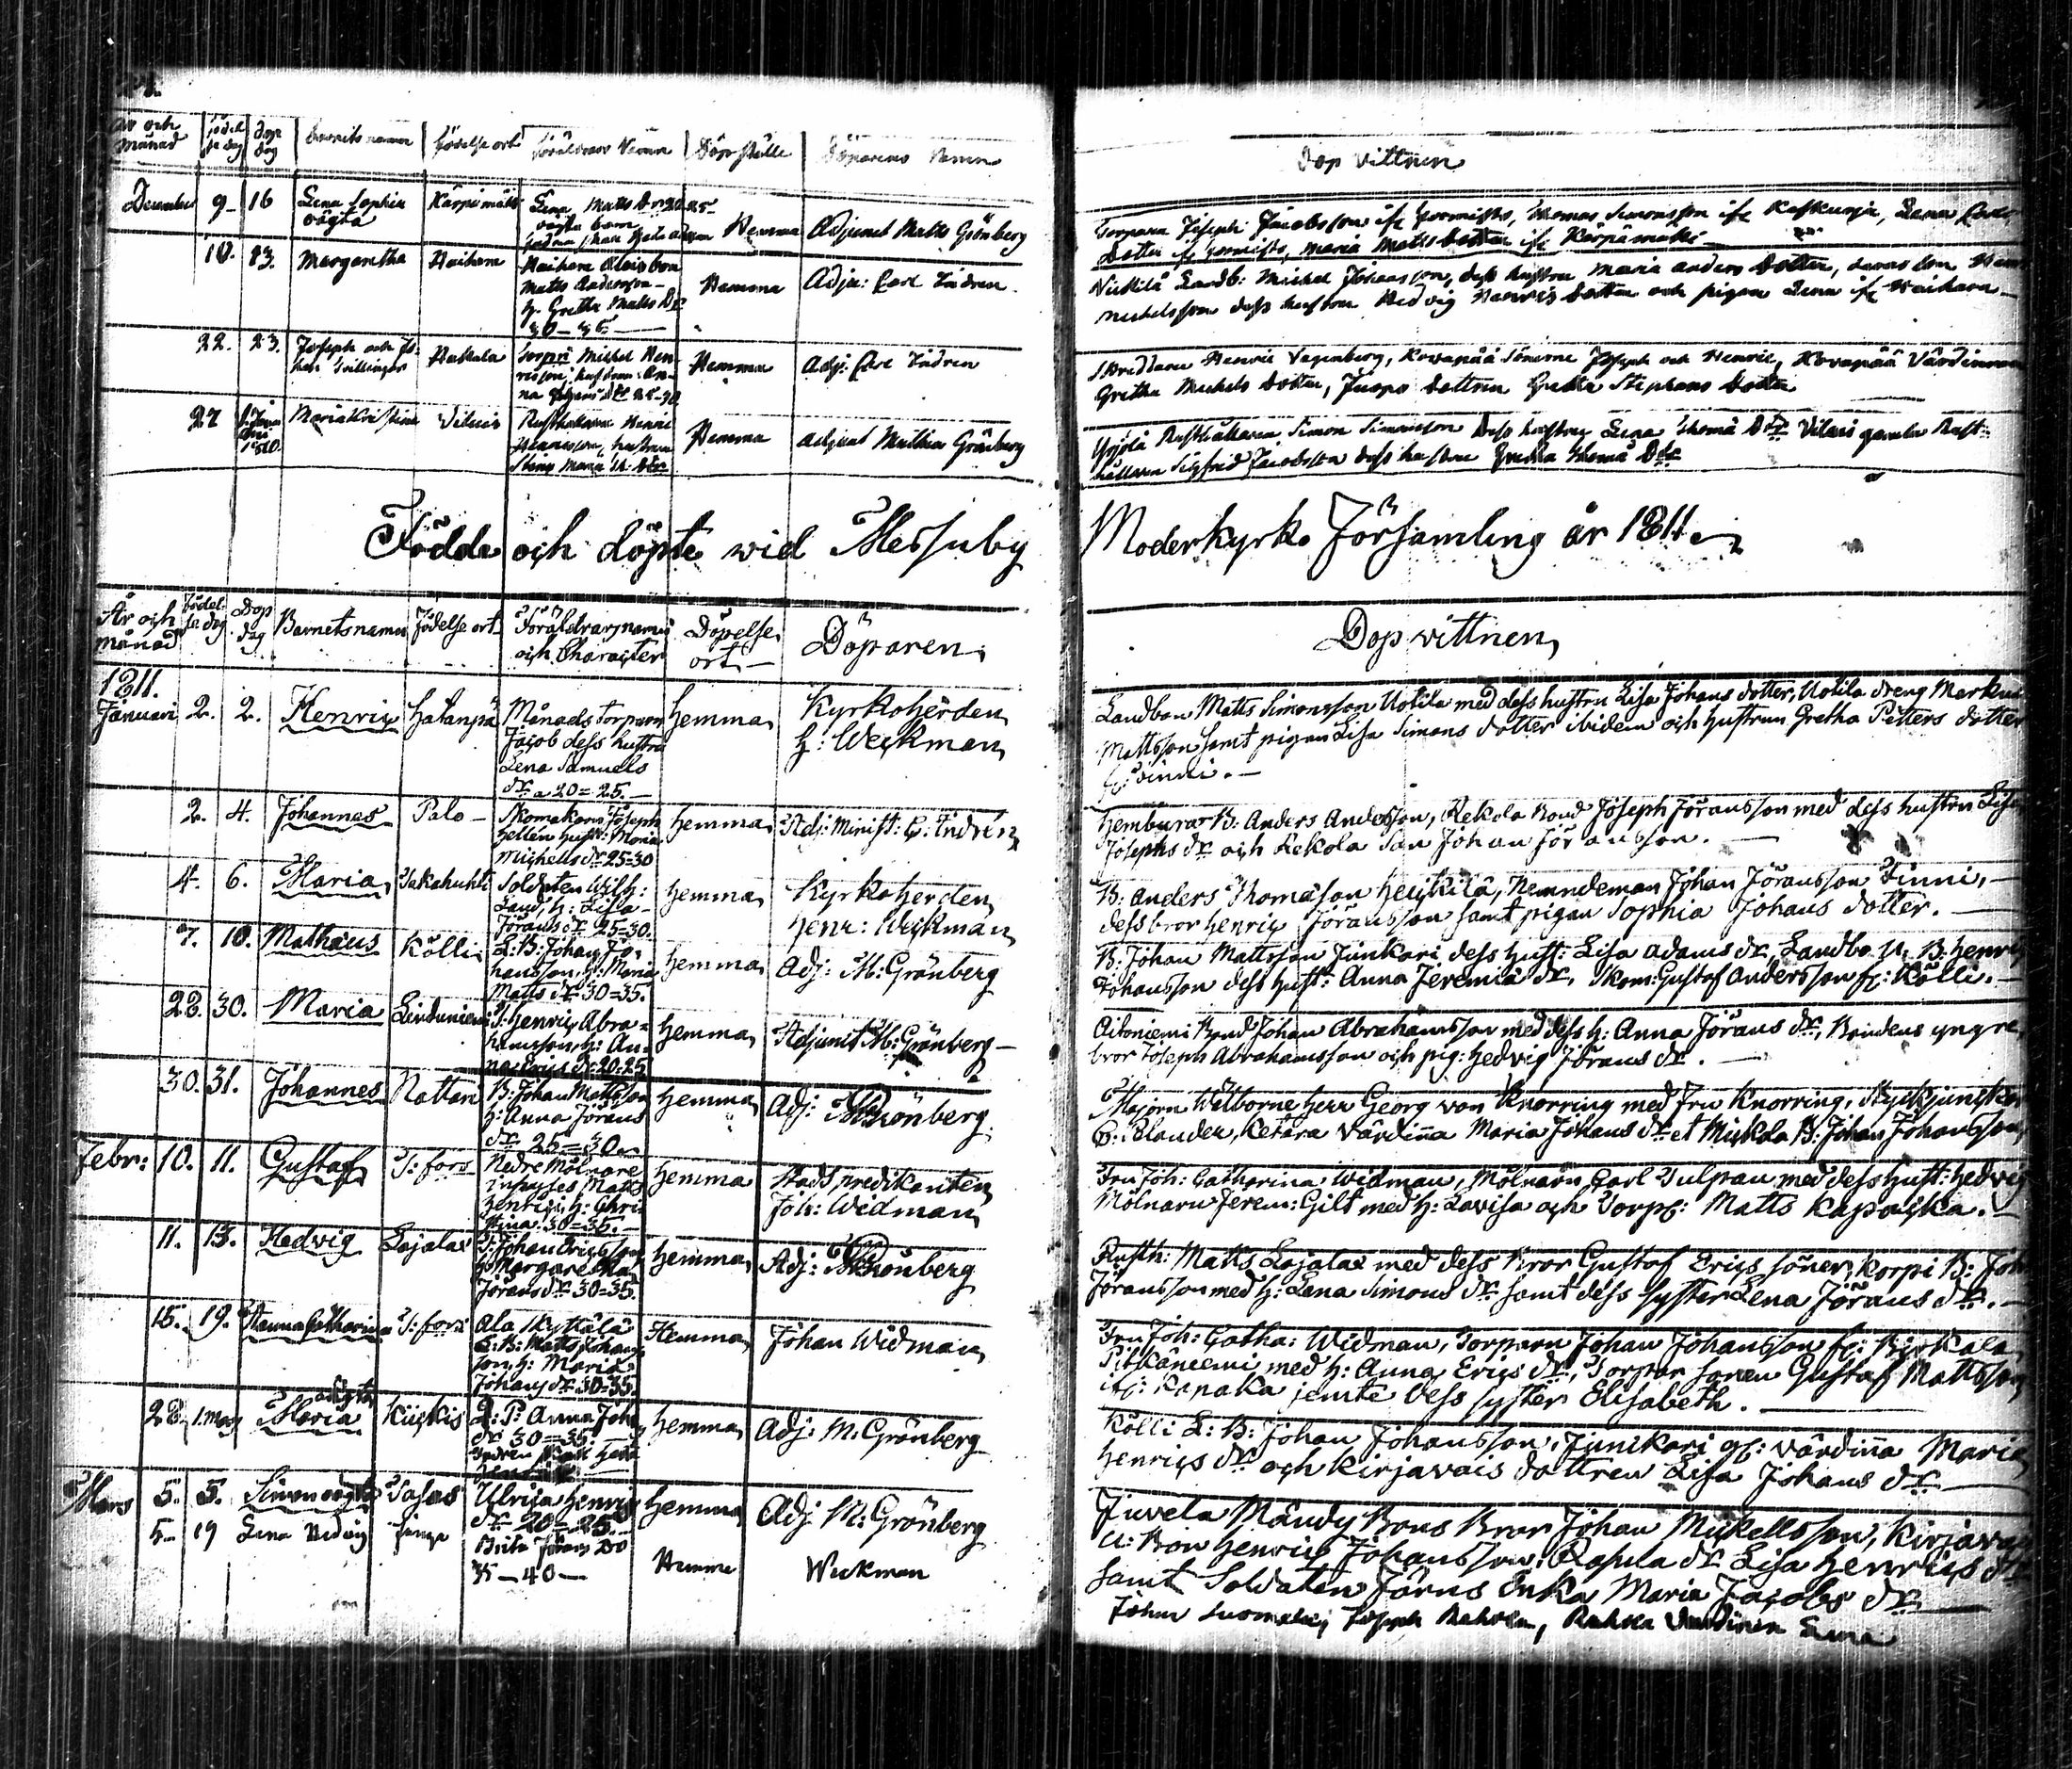 År och månad | födelse dag | dop dag | barnets namn | födelse ort | föräldrars Namn | Döpställe | Döparens Namn
Dop vittnen
December 9 16 Lena Sophia oägta Kärpimäki Lena Matts Dr 20-25 oägta barn Hemma Adjunct Matts Grönberg
Torparn Joseph Jacobsson if Sormisto, Thomas Simonsson if Kaskunja, Lena
Dotter if Sormisto, Maria Matts dotter if Kärpämäki
10. 13. Margaretha Haihara Haihara Matts Andersson h. Gretha Matts Dr 30-35 Hemma Adju: Carl Indren
Landb: Michel Johansson, dess hustru Maria Anders Dotter,
Michelsson dess hustru Hedvig Henrics dotter och pigan Lena if Haihara
22. 23. Joseph och Johan Tvillingar Hakala Michel Henricsson, hustrun Anna Hemma Adj: Carl Indren
Skreddaren Henric Vegenberg, Kovapää Sönerne Joseph och Henric, Kovapää Värdinnan
Gretha Michels Dotter, Juopo dottren Gretha Stephans Dotter
27 Maria Kristina Vilusi Rusthållaren Henric hustrun Maria Hemma Adjunct Mathias Grönberg
Yrjölä Rusthållaren Simon Simonsson dess hustru Lena Thomä Dr Vilusi gamla Rust-
hållaren Sigfrid Jacobsson dess hustru Thomä Dr
Födde och döpte wid Messuby Moderkyrko Församling år 1811
År och månad | Födelse dag | Dop dag | Barnets namn | Födelse ort | Föräldrars namn och Character | Döpelse ort | Döparen
Dop vittnen
1811.
Januari 2. 2. Henric Hatanpä Månads Torparn Jacob dess hustru Lena Samuels dr a 20=25. hemma Kyrkoherden H: Weckman
Landbon Matts Simonsson Uotila med dess hustru Lisa Johans dotter, Uotila dreng Markus
Mattsson samt pigan Lisa Simons dotter ibidem och hustrun Gretha Petters dotter
fr: Finni.
2. 4. Johannes Palo Skomakarn Joseph Hellén hustr: Maria Michels dr 25=30 hemma Adj: Minist: C: Indrén
Hembura B: Anders Andersson, Rekola Bond Joseph Jöransson med dess hustru Lisa
Josephs dr och Rekola Son Johan Jöransson.
4. 6. Maria Takahuhti Soldaten Wilh: Sand, h: Lisa Jörans dr 25=30. hemma Kyrkoherden Henr: Weckman
B: Anders Thomason Heickilä, Nemndeman Johan Jöransson Finni,
dess bror Henric Jöransson samt pigan Sophia Johans dotter.
7. 10. Mathæus Kölli L: B: Johan Johansson, h: Maria Matts dr 30=35. hemma Adj: M: Grönberg
B: Johan Mattsson Junkari dess hust: Lisa Adams dr, Landbo N: B: Henric
Johansson dess hust: Anna Jeremiä dr, Skom: Gustaf Andersson fr: Kölli.
28. 30. Maria T: Henric Abrahamsson, h: Anna Erics dr 20=25 hemma Adjunct M: Grönberg
Aitoniemi Bond Johan Abrahamsson med dess h: Anna Jörans dr, Bondens yngre
bror Joseph Abrahamsson och pig: Hedvig Jörans dr.
30. 31. Johannes Nattari B: Johan Mattsson h: Anna Jörans dr 25=30 hemma Adj: M: Grönberg
Majorn Welborne Herr Georg von Knorring med Fru Knorring,
Kerara Värdinna Maria Johans dr et Mickola B: Johan Johansson
Febr: 10. 11. Gustaf T: fors Nedre Mölnare inhyses Matts Henrics, h: Christina 30=35. hemma Stads predikanten Joh: Widman
Fru Joh: Catharina Widman, Mölnarn Carl Tulpan med dess hust: Hedvig
Mölnarn Jerem: Gilt med h: Lovisa och Torp: Matts Kapakka.
11. 13. Hedvig Lajalax T: Johan Ericsson h: Margaretha Jörans dr 30=35. hemma Adj: M: Grönberg
Rusth: Matts Lajalax med dess Bror Gustaf Erics söner, Korpi B: Joh:
Jöransson med h: Lena Simons dr samt dess syster Lena Jörans dr.
15. 19. Hanna Catharina T: fors Ala Kyttälä L: B: Matts Johansson, h: Maria Johans dr 30=35. Hemma Johan Widman
Fru Joh: Catha: Widman, Torparn Johan Johansson fr: Birkala
Pitkäniemi med h: Anna Erics dr, Torpar sonen Gustaf Mattsson
if: Kanaka jemte dess syster Elisabeth.
28. 1. Mars Maria oägta Kiickis Q: P: Anna Joh: dr 30=35. hemma Adj: M: Grönberg
Kölli L: B: Johan Johansson, Junckari gl: värdinna Maria
Henrics dr och Kirjavais dottren Lisa Johans dr
Mars 5. 5. Simon oägta Ulrica Henrics dr 20=25 hemma Adj: M: Grönberg
Juvela Mändy Bons Bror Johan Mickelsson,
U: Bon Henric Johansson, Rasula dr Lisa Henrics dr
samt Soldaten Jörns Enka Maria Jacobs dr
5 19 Lena Hedvig Brita Jörans Dr 35-40 Hemma Weckman
Johan Suomela, Joseph Rahola, Rahola Värdinnan Lena